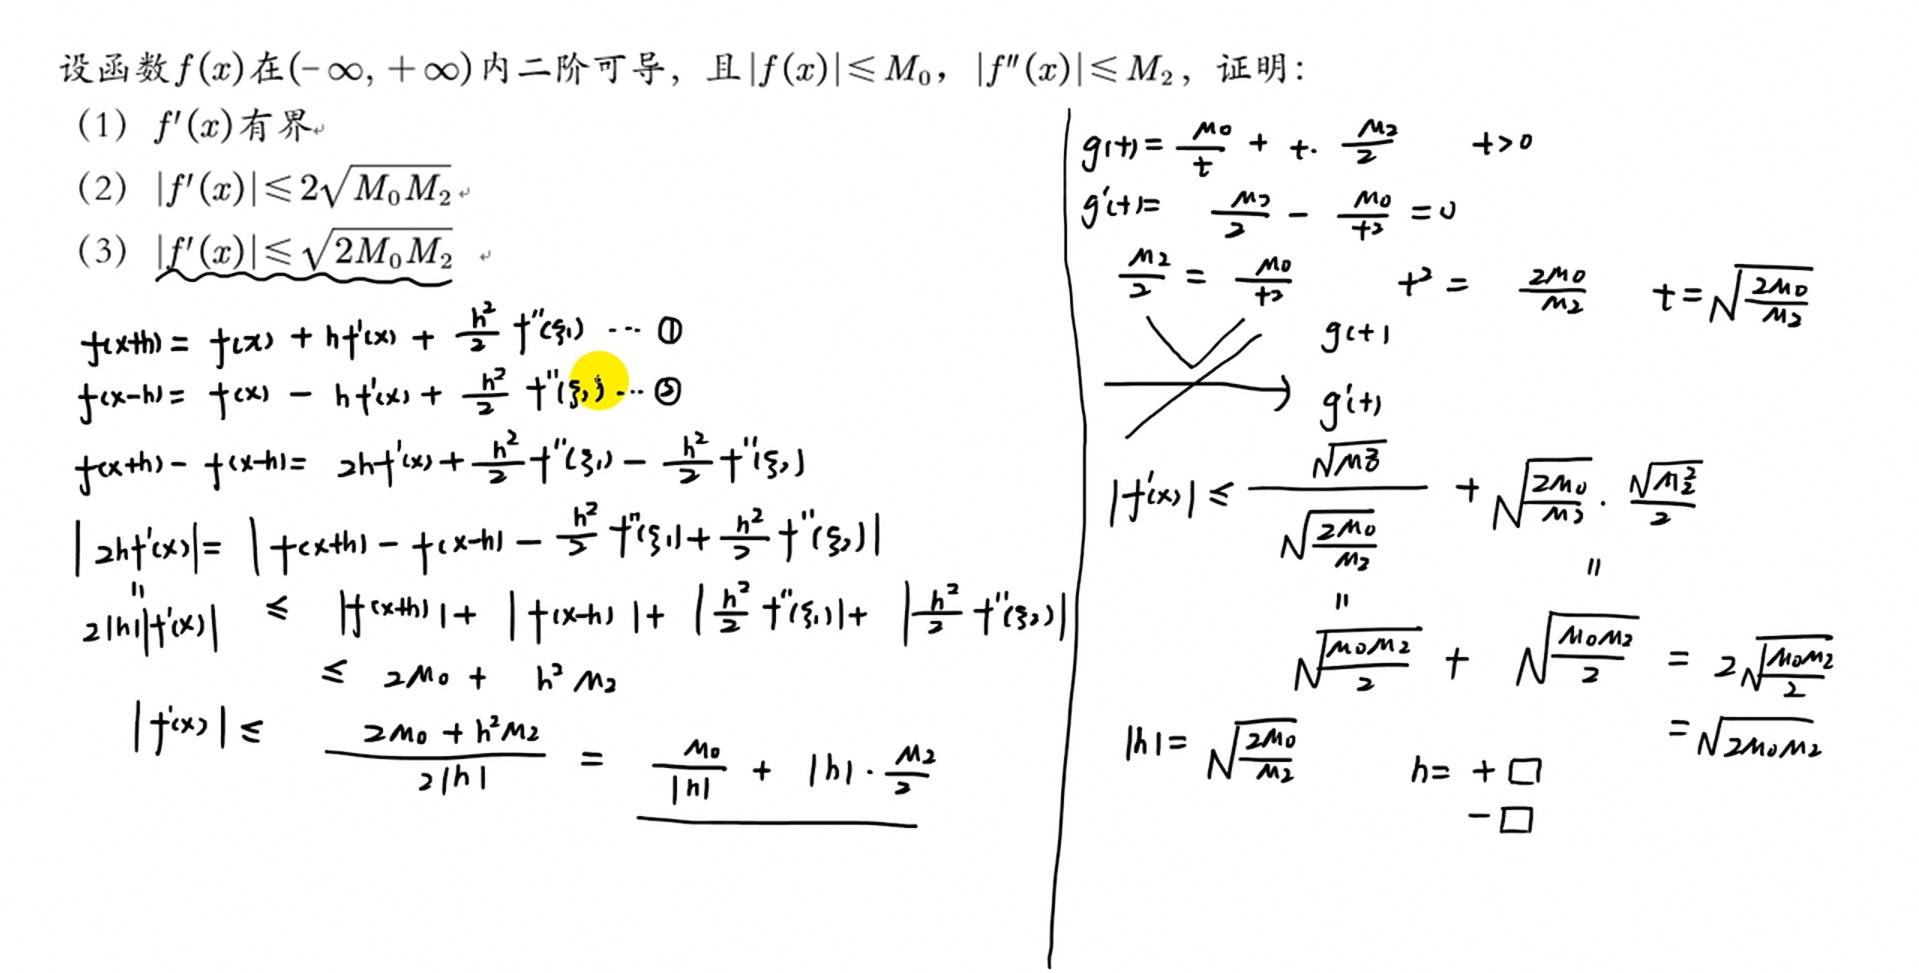 设函数f(x)在(-∞, +∞)内二阶可导，且|f(x)|≤M₀，|f″(x)|≤M₂，证明：
(1) f′(x)有界
(2) |f′(x)|≤2√(M₀M₂)
(3) |f′(x)|≤√(2M₀M₂)
f(x+h) = f(x) + hf′(x) + h²/2 f″(ξ₁) ··· ①
f(x-h) = f(x) - hf′(x) + h²/2 f″(ξ₂) ··· ②
f(x+h) - f(x-h) = 2hf′(x) + h²/2 f″(ξ₁) - h²/2 f″(ξ₂)
|2hf′(x)| = |f(x+h) - f(x-h) - h²/2 f″(ξ₁) + h²/2 f″(ξ₂)|
=
2|h||f′(x)| ≤ |f(x+h)| + |f(x-h)| + |h²/2 f″(ξ₁)| + |h²/2 f″(ξ₂)|
≤ 2M₀ + h²M₂
|f′(x)| ≤ (2M₀ + h²M₂)/(2|h|) = M₀/|h| + |h|·M₂/2
g(t) = M₀/t + t·M₂/2 t>0
g′(t) = M₂/2 - M₀/t² = 0
M₂/2 = M₀/t² t² = 2M₀/M₂ t = √(2M₀/M₂)
g(t)
g′(t)
|f′(x)| ≤ √(M₀²)/√(2M₀/M₂) + √(2M₀/M₂)·√(M₂²)/2
= =
√(M₀M₂/2) + √(M₀M₂/2) = 2√(M₀M₂/2)
= √(2M₀M₂)
|h| = √(2M₀/M₂) h = +□
-□